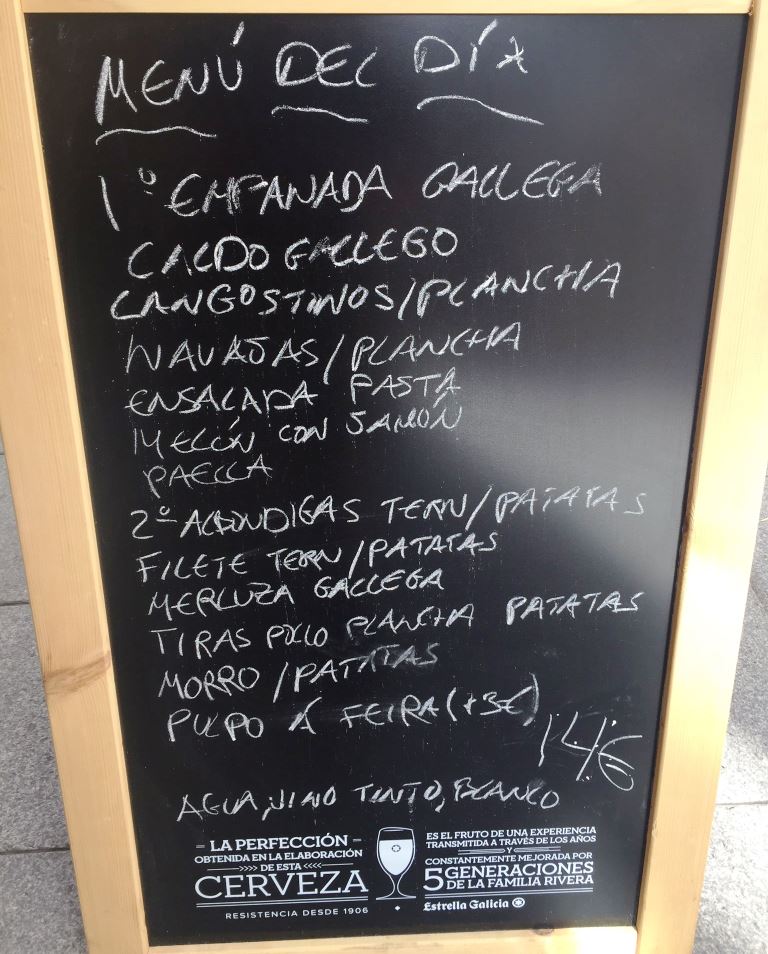 MENÚ DEL DÍA
1º EMPANADA GALLEGA
CALDO GALLEGO
LANGOSTINOS/PLANCHA
NAVAJAS/PLANCHA
ENSALADA PASTA
MELÓN CON JAMÓN
PAELLA
2º ALBONDIGAS TERN/PATATAS
FILETE TERN/PATATAS
MERLUZA GALLEGA
TIRAS POLLO PLANCHA PATATAS
MORRO/PATATAS
PULPO Á FEIRA (+3€)
14€
AGUA, VINO TINTO, BLANCO
LA PERFECCIÓN
OBTENIDA EN LA ELABORACIÓN
DE ESTA
CERVEZA
RESISTENCIA DESDE 1906
ES EL FRUTO DE UNA EXPERIENCIA
TRANSMITIDA A TRAVÉS DE LOS AÑOS
Y
CONSTANTEMENTE MEJORADA POR
5 GENERACIONES
DE LA FAMILIA RIVERA
Estrella Galicia